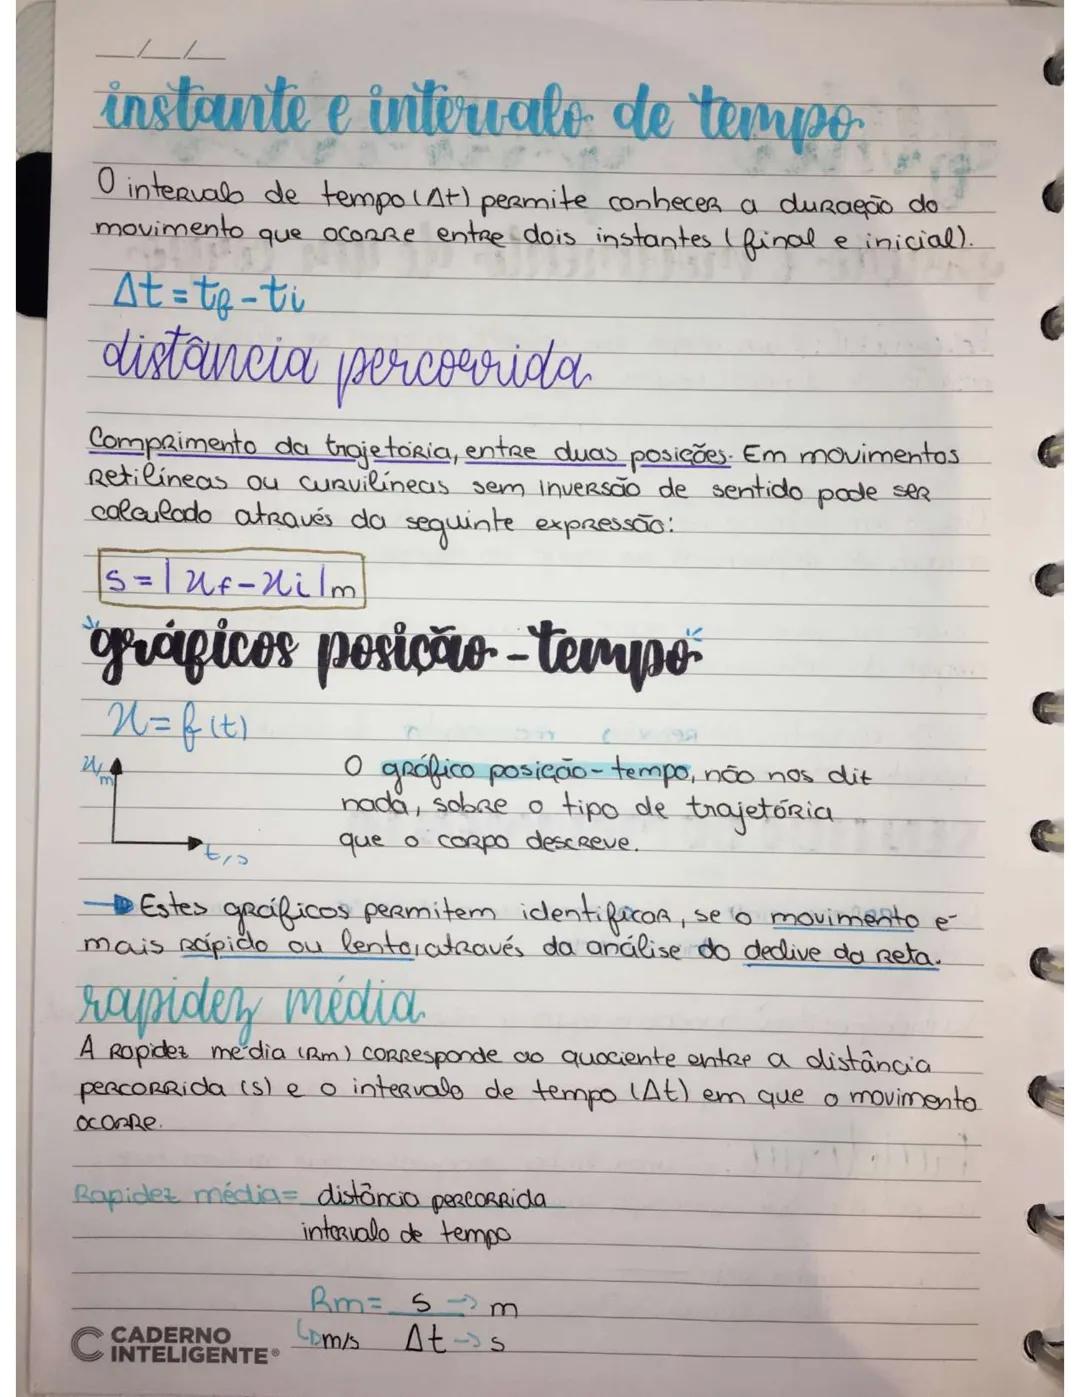 __/__/__
instante e intervalo de tempo
O intervalo de tempo (Δt) permite conhecer a duração do
movimento que ocorre entre dois instantes (final e inicial).
Δt = tf - ti
distância percorrida
Comprimento da trajetória, entre duas posições. Em movimentos
retilíneas ou curvilíneas sem inversão de sentido pode ser
calculado através da seguinte expressão:
s = | xf - xi | m
gráficos posição - tempo
x = f (t)
x, m
O gráfico posição - tempo, não nos dit
nada, sobre o tipo de trajetória
que o corpo descreve.
t, s
→ Estes gráficos permitem identificar, se o movimento é
mais rápido ou lento, através da análise do declive da reta.
rapidez média
A Rapidez média (Rm) corresponde ao quociente entre a distância
percorrida (s) e o intervalo de tempo (Δt) em que o movimento
ocorre.
Rapidez média = distância percorrida
intervalo de tempo
Rm = s → m
↳ m/s Δt → s
CADERNO
INTELIGENTE®